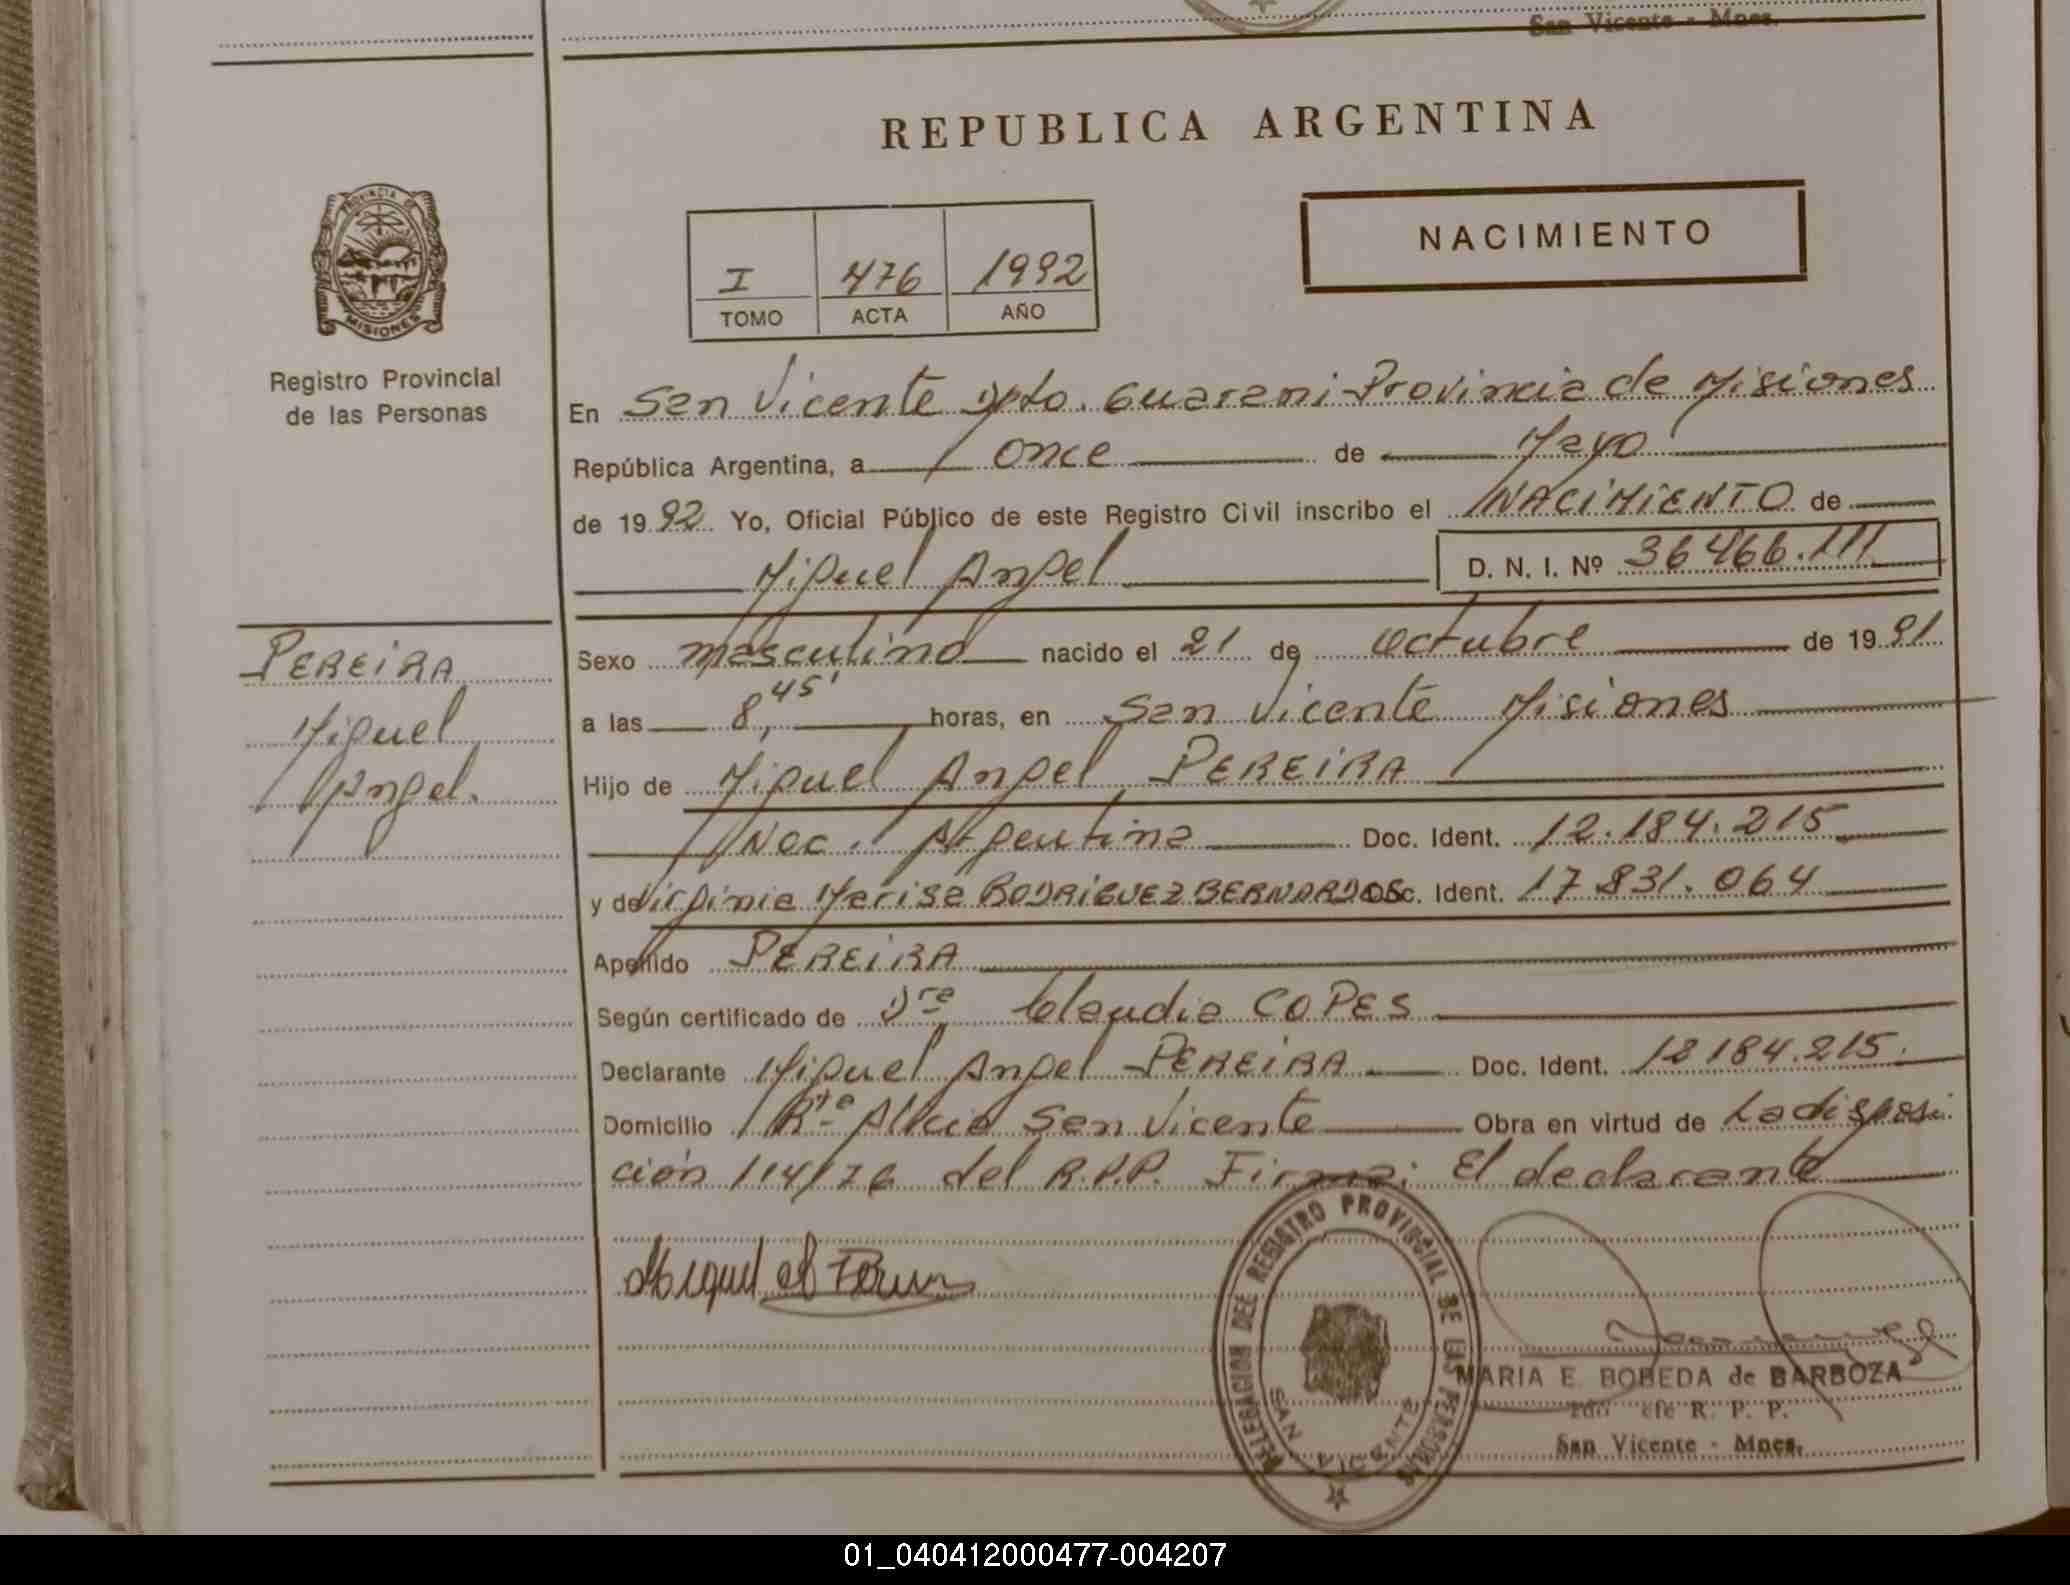 San Vicente - Mnes.
REPUBLICA ARGENTINA
PROVINCIA DE
MISIONES
NACIMIENTO
I 476 1992
TOMO ACTA AÑO
Registro Provincial
de las Personas
En San Vicente Dpto. Guarani - Provincia de Misiones
República Argentina, a Once de Mayo
de 19 92 Yo, Oficial Público de este Registro Civil inscribo el NACIMIENTO de
Miguel Angel D. N. I. Nº 36466.111
PEREIRA
Miguel
Angel.
Sexo masculino nacido el 21 de octubre de 19 91
a las 8,45' horas, en San Vicente Misiones
Hijo de Miguel Angel PEREIRA
Nac. Argentina Doc. Ident. 12.184.215
y de Virginia Marisa RODRIGUEZ BERNARDO Doc. Ident. 17831.064
Apellido PEREIRA
Según certificado de Dra Claudia COPES
Declarante Miguel Angel PEREIRA Doc. Ident. 12184.215.
Domicilio San Vicente Obra en virtud de La disposi
ción 114/76 del R.P.P. Firma: El declarante
Miguel
DELEGACION DEL REGISTRO PROVINCIAL DE LAS PERSONAS
SAN VICENTE
MARIA E. BOBEDA de BARBOZA
R. P. P.
San Vicente - Mnes.
01_040412000477-004207